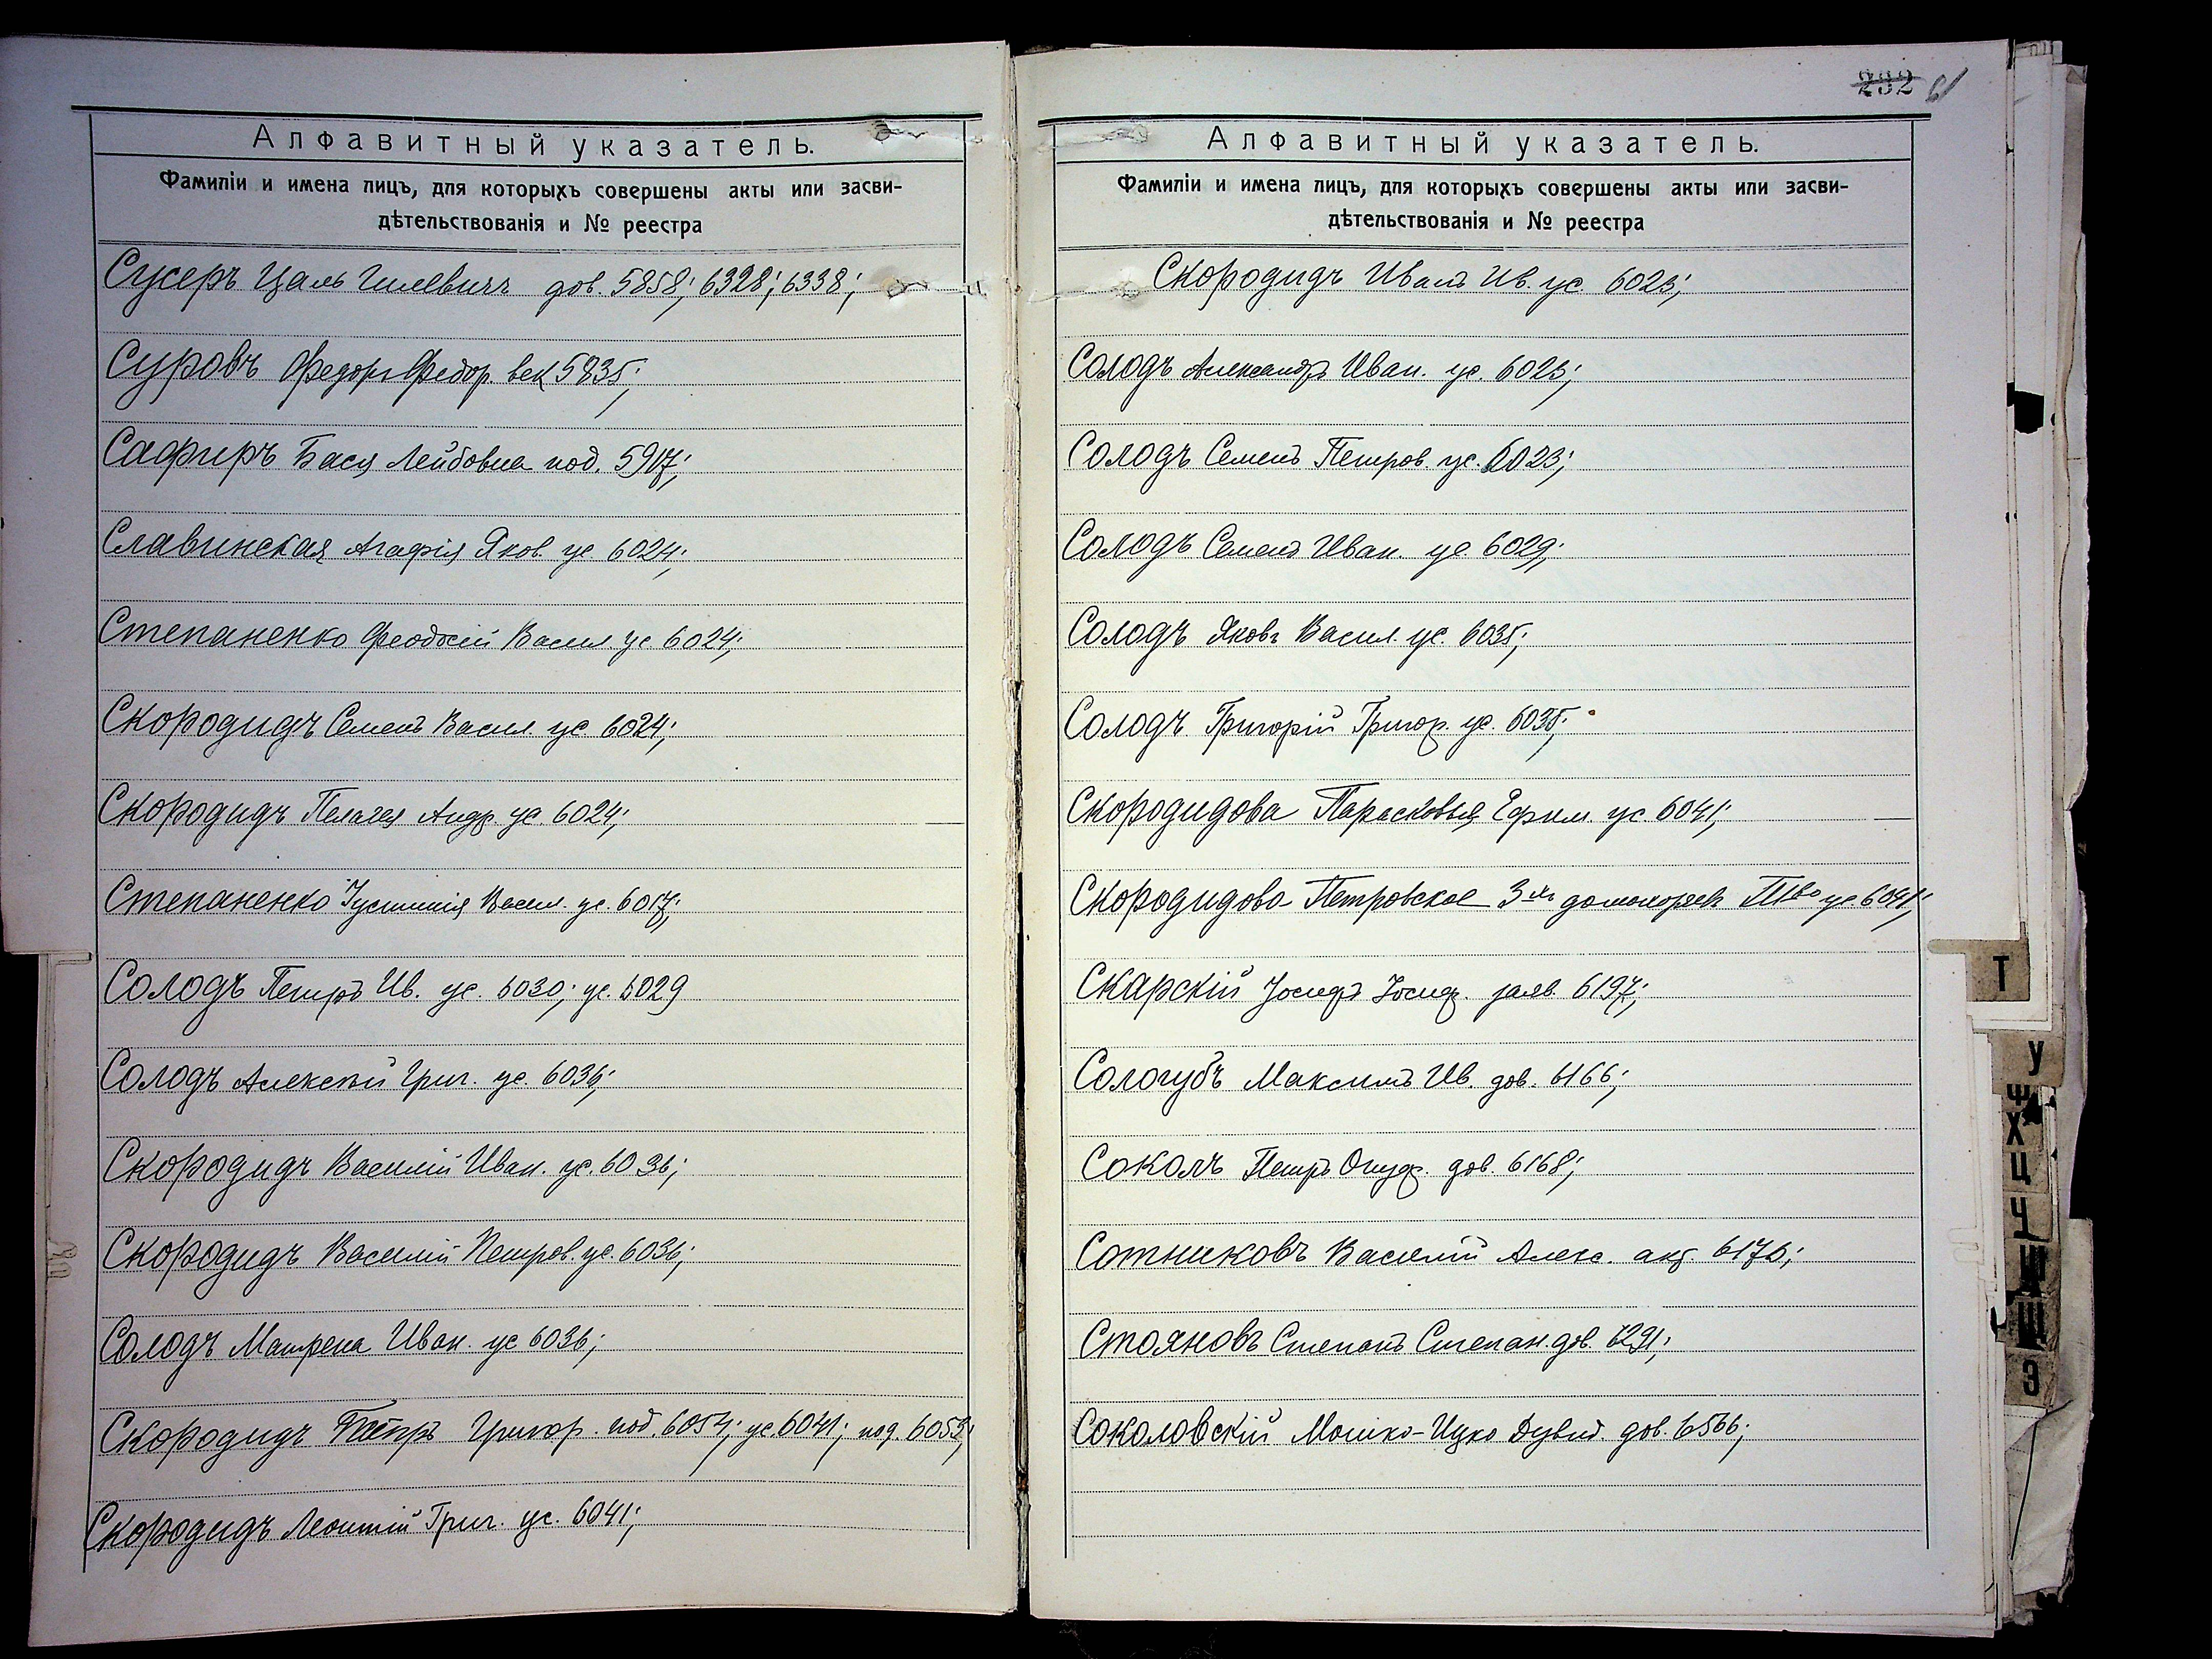 Алфавитный указатель.
Фамиліи и имена лицъ, для которыхъ совершены акты или засви-
дѣтельствованія и № реестра
Сусеръ Цаль Гилевичъ дов. 5858; 6328; 6338;
Суровъ Федоръ Федор. век 5835;
Сафиръ Бася Лейбовна под. 5907;
Славинская Агафія Яков. ус. 6024;
Степаненко Феодосій Васил. ус. 6024;
Скородидъ Семенъ Васил. ус. 6024;
Скородидъ Пелагея Андр. ус. 6024;
Степаненко Іустинія Васил. ус. 6017;
Солодъ Петръ Ив. ус. 6030; ус. 6029
Солодъ Алексѣй Григ. ус. 6036;
Скородидъ Василій Иван. ус. 6036;
Скородидъ Василій Петров. ус. 6036;
Солодъ Матрена Иван. ус 6036;
Скородидъ Петръ Григор. под. 6054; ус. 6041; под. 6053;
Скородидъ Леонтій Григ. ус. 6041;
232 61
Алфавитный указатель.
Фамиліи и имена лицъ, для которыхъ совершены акты или засви-
дѣтельствованія и № реестра
Скородидъ Иванъ Ив. ус. 6023;
Солодъ Александръ Иван. ус. 6023;
Солодъ Семенъ Петров. ус. 6023;
Солодъ Семенъ Иван. ус 6029;
Солодъ Яковъ Васил. ус. 6035;
Солодъ Григорій Григор. ус. 6035;
Скородидова Парасковья Ефим. ус. 6041;
Скородидово Петровское 3-хъ домохозяевъ Т-во ус. 6041;
Скарскій Іосифъ Іосиф. заяв. 6197;
Сологубъ Максимъ Ив. дов. 6166;
Соколъ Петръ Онуф. дов. 6168;
Сотниковъ Василій Алекс. акт. 6176;
Стояновъ Степанъ Степан. дов. 6291;
Соколовскій Мошко-Ицко Дувид. дов. 6566;
Т
У
Ф
Х
Ц
Ч
Ш
Щ
Э